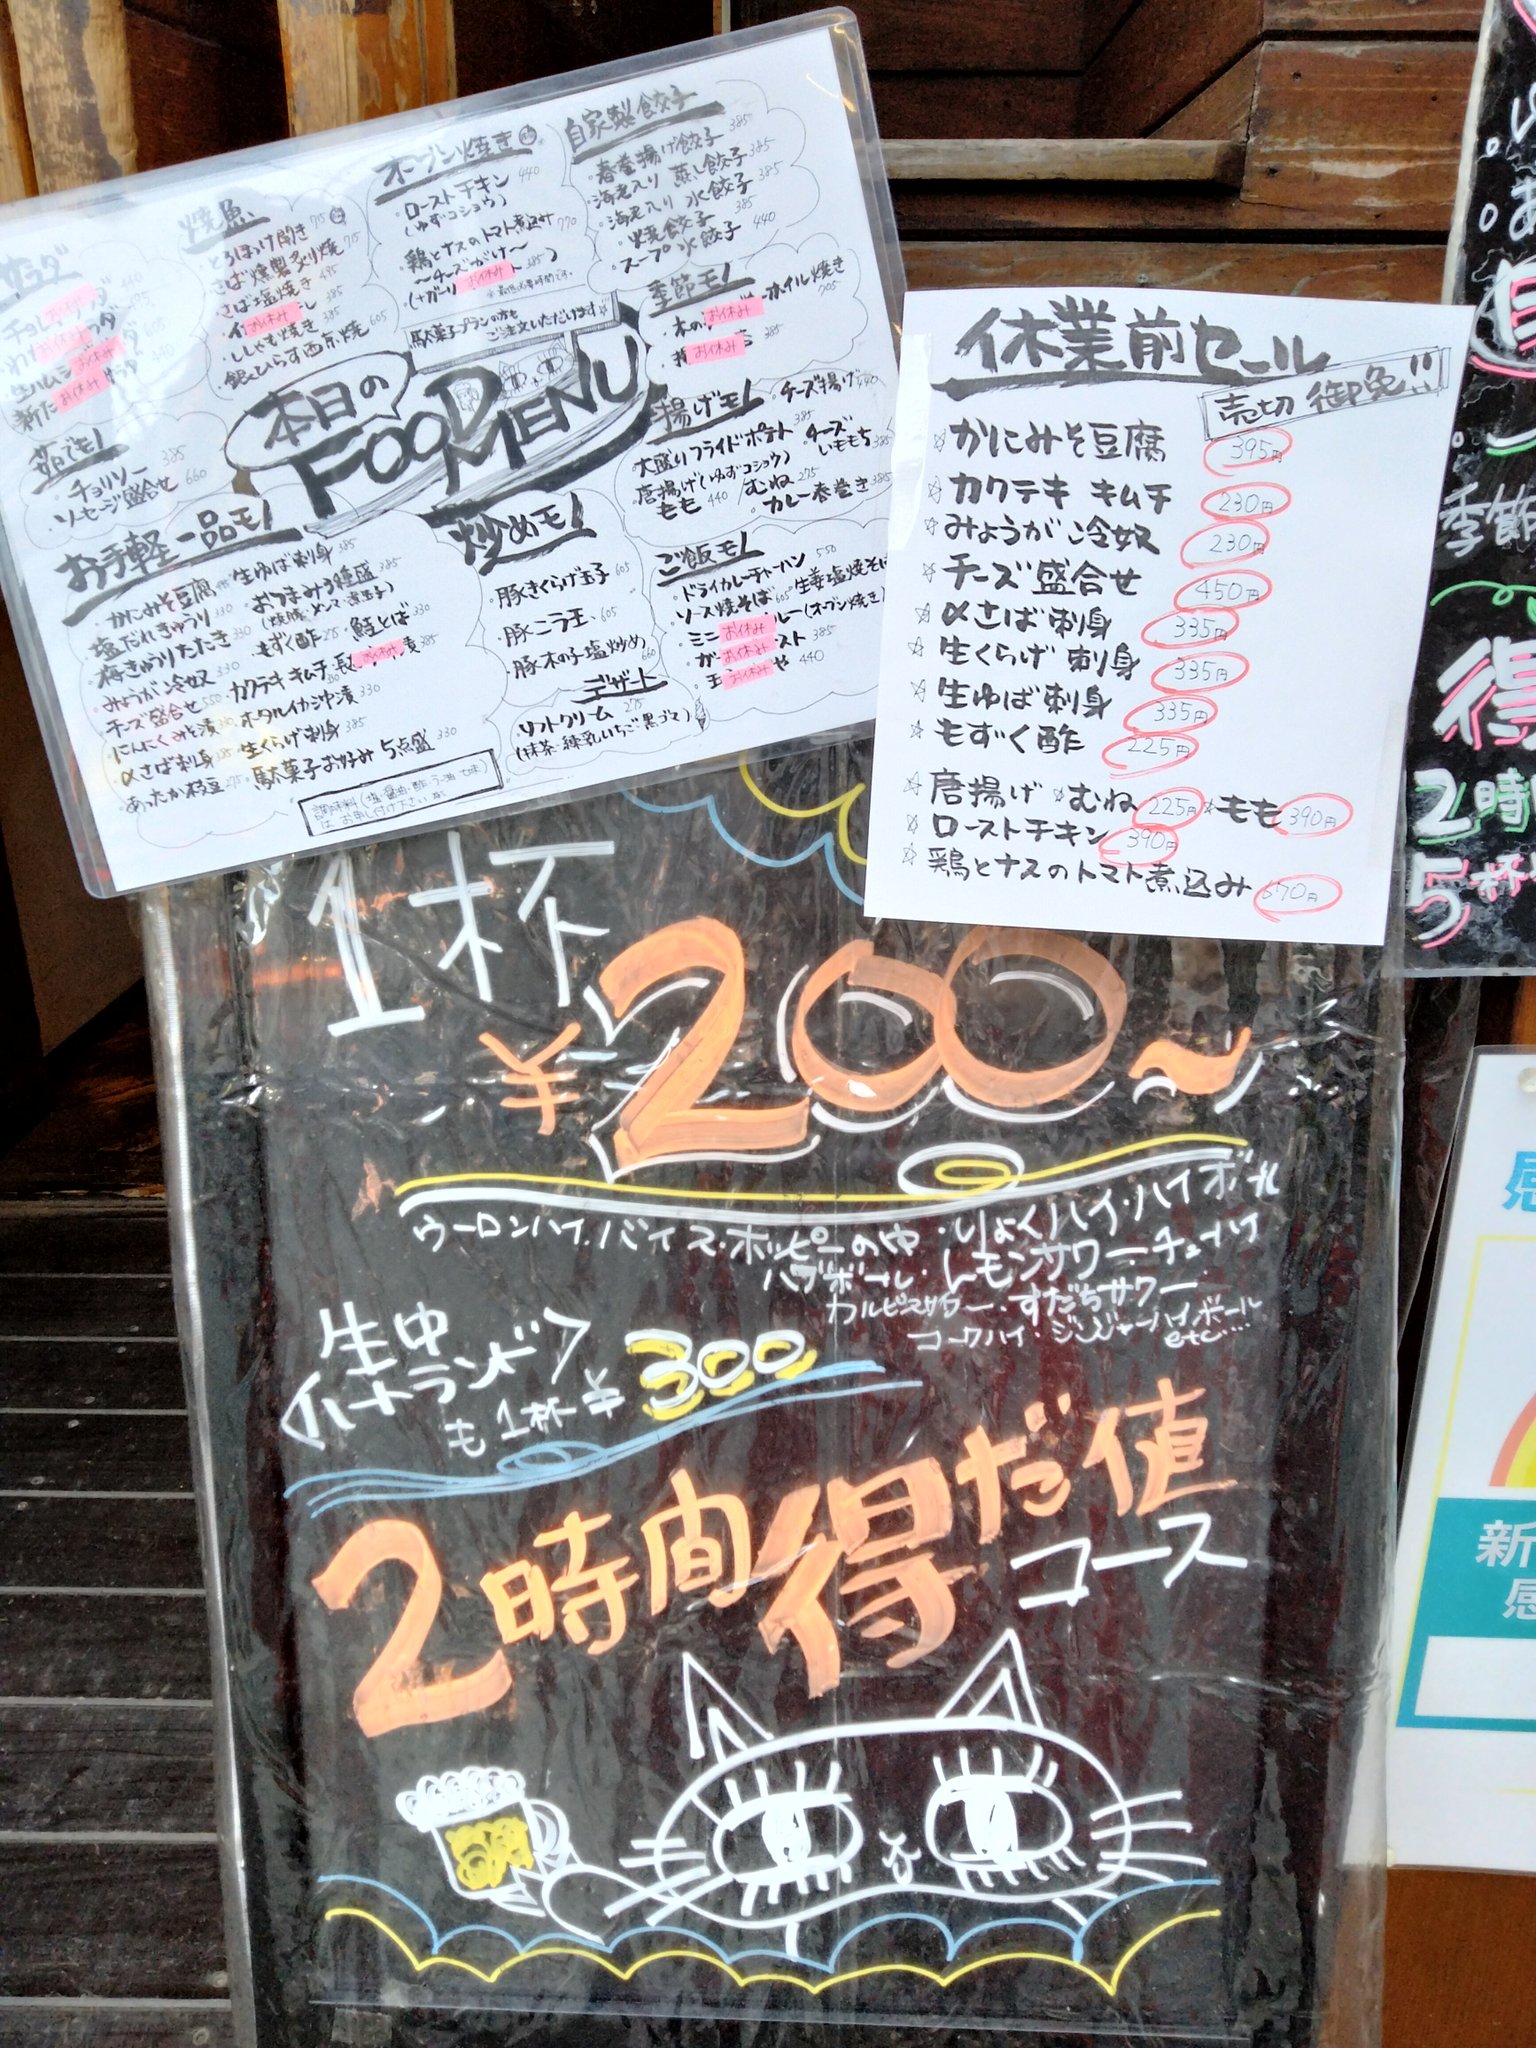 本日の
FOOD MENU
サラダ
焼魚
とろほっけ開き 715
さば燻製炙り焼 715
さば塩焼き 495
お休み 385
ししゃも焼き 385
銀ひらす西京焼 605
オーブン焼き
ローストチキン 440
(ゆずコショウ)
鶏とナスのトマト煮込み 770
〜チーズがけ〜
(+ガーリ お休み ト 385)
駄菓子プランの方も
ご注文いただけます
自家製餃子
春巻揚げ餃子 385
海老入り 蒸し餃子 385
海老入り 水餃子 385
焼餃子 385
スープ水餃子 440
季節モノ
木の お休み ホイル焼き 705
お休み 385
茹でモノ
チョリソー 385
ソーセージ盛合せ 660
揚げモノ
チーズ揚げ 440
大盛りフライドポテト 385
チーズいももち 385
唐揚げ(ゆずコショウ)
もも 440 / むね 275
カレー春巻き 385
お手軽一品モノ
かにみそ豆腐
生ゆば刺身 385
塩だれきゅうり 330
おつまみ3種盛 385
梅きゅうりたたき 330
もずく酢 275
鮭とば 330
みょうが冷奴 330
カクテキキムチ
チーズ盛合せ 550
ホタルイカ沖漬 330
にんにくみそ漬 330
生くらげ刺身 385
〆さば刺身 385
駄菓子お好み5点盛 330
あったか枝豆 275
調味料(塩・醤油・酢・ラー油・七味)
はお申し付け下さい
炒めモノ
豚きくらげ玉子 605
豚ニラ玉 605
豚木の子塩炒め 660
デザート
ソフトクリーム 275
(抹茶・練乳いちご・黒ゴマ)
ご飯モノ
ドライカレーチャーハン 550
ソース焼そば 605
生姜塩焼そば
ミニ お休み ルー(オーブン焼き)
ガー お休み スト 385
玉 お休み や 440
休業前セール
売切御免!!
☆かにみそ豆腐 395円
☆カクテキ キムチ 230円
☆みょうが冷奴 230円
☆チーズ盛合せ 450円
☆〆さば刺身 335円
☆生くらげ刺身 335円
☆生ゆば刺身 335円
☆もずく酢 225円
☆唐揚げ ★むね 225円 ★もも 390円
☆ローストチキン 390円
☆鶏とナスのトマト煮込み 670円
1杯
¥200〜
ウーロンハイ・バイス・ホッピーの中・りょくハイ・ハイボール
ハブボール・レモンサワー・チューハイ
カルピスサワー・すだちサワー・
コークハイ・ジンジャーハイボール
etc....
生中
〈ハートランド〉
も1杯¥300
2時間得だ値
コース
季節
得
2時
5杯
新
感